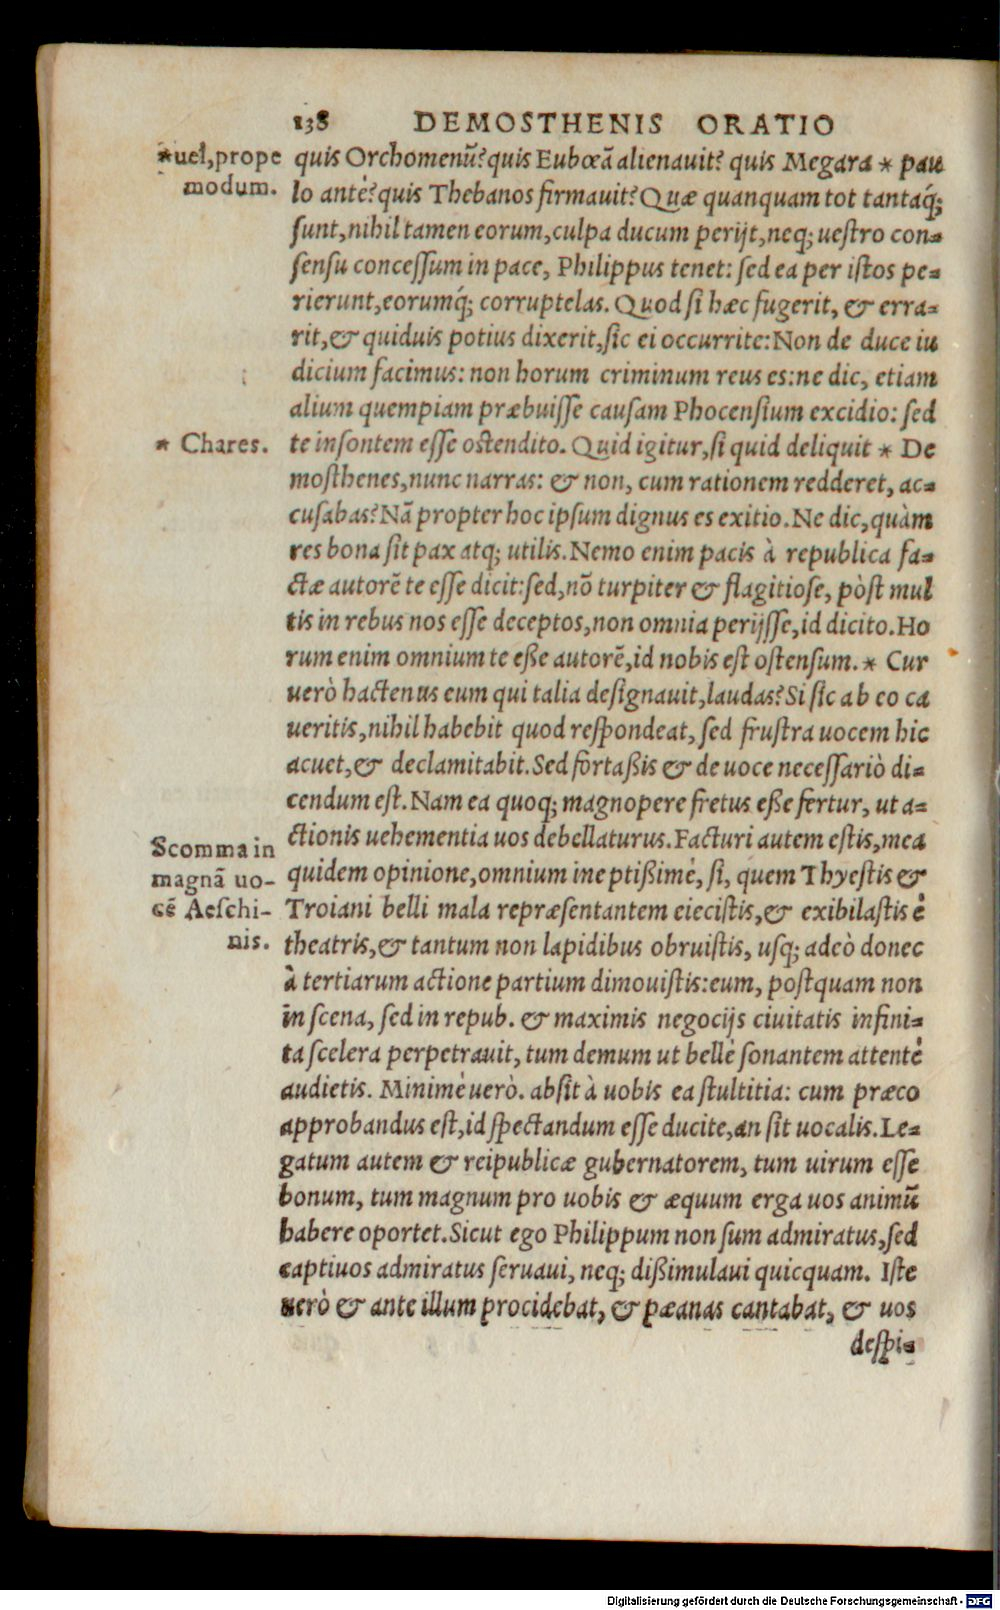 138 DEMOSTHENIS ORATIO
*uel, prope
modum.
quis Orchomenũ? quis Eubœã alienauit? quis Megara * pau
lo antè? quis Thebanos firmauit? Quæ quanquam tot tantaq́;
sunt, nihil tamen eorum, culpa ducum perijt, neq; uestro con-
sensu concessum in pace, Philippus tenet: sed ea per istos pe-
rierunt, eorumq́; corruptelas. Quod si hæc fugerit, & erra-
rit, & quiduis potius dixerit, sic ei occurrite: Non de duce iu
dicium facimus: non horum criminum reus es: ne dic, etiam
alium quempiam præbuisse causam Phocensium excidio: sed
* Chares.
te insontem esse ostendito. Quid igitur, si quid deliquit * De
mosthenes, nunc narras: & non, cum rationem redderet, ac-
cusabas? Nã propter hoc ipsum dignus es exitio. Ne dic, quàm
res bona sit pax atq; utilis. Nemo enim pacis à republica fa-
ctæ autorẽ te esse dicit: sed, nõ turpiter & flagitiose, pòst mul
tis in rebus nos esse deceptos, non omnia perijsse, id dicito. Ho
rum enim omnium te eße autorẽ, id nobis est ostensum. * Cur
uerò hactenus eum qui talia designauit, laudas? Si sic ab eo ca
ueritis, nihil habebit quod respondeat, sed frustra uocem hic
acuet, & declamitabit. Sed fortaßis & de uoce necessariò di-
cendum est. Nam ea quoq; magnopere fretus eße fertur, ut a-
Scomma in
magnã uo-
cẽ Aeschi-
nis.
ctionis uehementia uos debellaturus. Facturi autem estis, mea
quidem opinione, omnium ineptißimè, si, quem Thyestis &
Troiani belli mala repræsentantem eiecistis, & exibilastis è
theatris, & tantum non lapidibus obruistis, usq; adeò donec
à tertiarum actione partium dimouistis: eum, postquam non
in scena, sed in repub. & maximis negocijs ciuitatis infini-
ta scelera perpetrauit, tum demum ut bellè sonantem attentè
audietis. Minimè uerò. absit à uobis ea stultitia: cum præco
approbandus est, id spectandum esse ducite, an sit uocalis. Le-
gatum autem & reipublicæ gubernatorem, tum uirum esse
bonum, tum magnum pro uobis & æquum erga uos animũ
habere oportet. Sicut ego Philippum non sum admiratus, sed
captiuos admiratus seruaui, neq; dißimulaui quicquam. Iste
uerò & ante illum procidebat, & pæanas cantabat, & uos
despi-
Digitalisierung gefördert durch die Deutsche Forschungsgemeinschaft - DFG